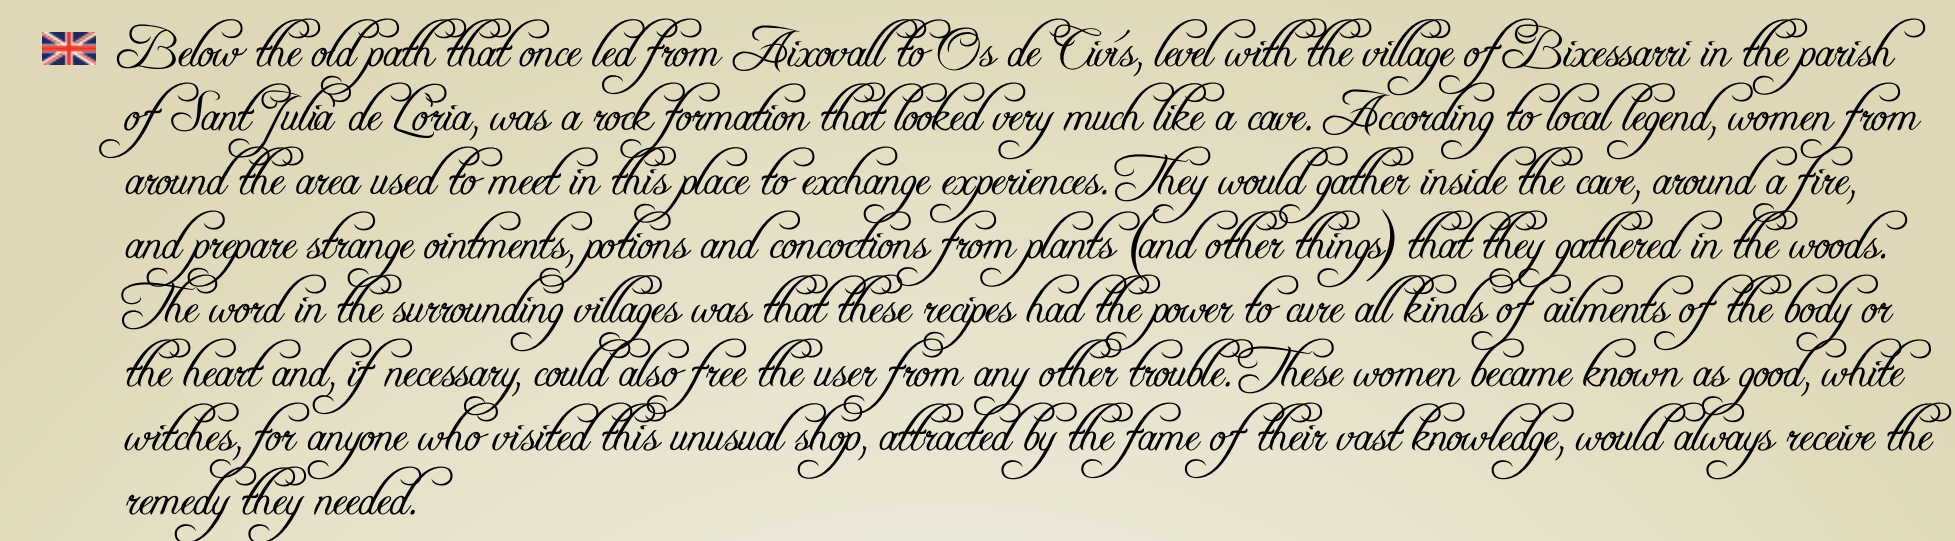 Below the old path that once led from Aixovall to Os de Civís, level with the village of Bixessarri in the parish
of Sant Julià de Lòria, was a rock formation that looked very much like a cave. According to local legend, women from
around the area used to meet in this place to exchange experiences. They would gather inside the cave, around a fire,
and prepare strange ointments, potions and concoctions from plants (and other things) that they gathered in the woods.
The word in the surrounding villages was that these recipes had the power to cure all kinds of ailments of the body or
the heart and, if necessary, could also free the user from any other trouble. These women became known as good, white
witches, for anyone who visited this unusual shop, attracted by the fame of their vast knowledge, would always receive the
remedy they needed.